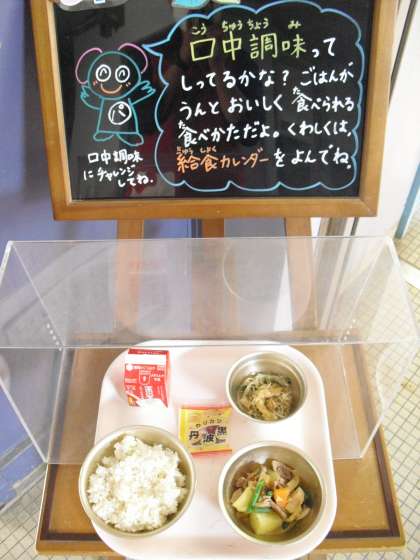 こう ちゅう ちょう み
口中調味って
しってるかな？ごはんが
うんとおいしく食べられる
た
食べかただよ。くわしくは、
きゅう しょく
給食カレンダーをよんでね。
口中調味
にチャレンジ
してね.
カリカリ
丹波黒